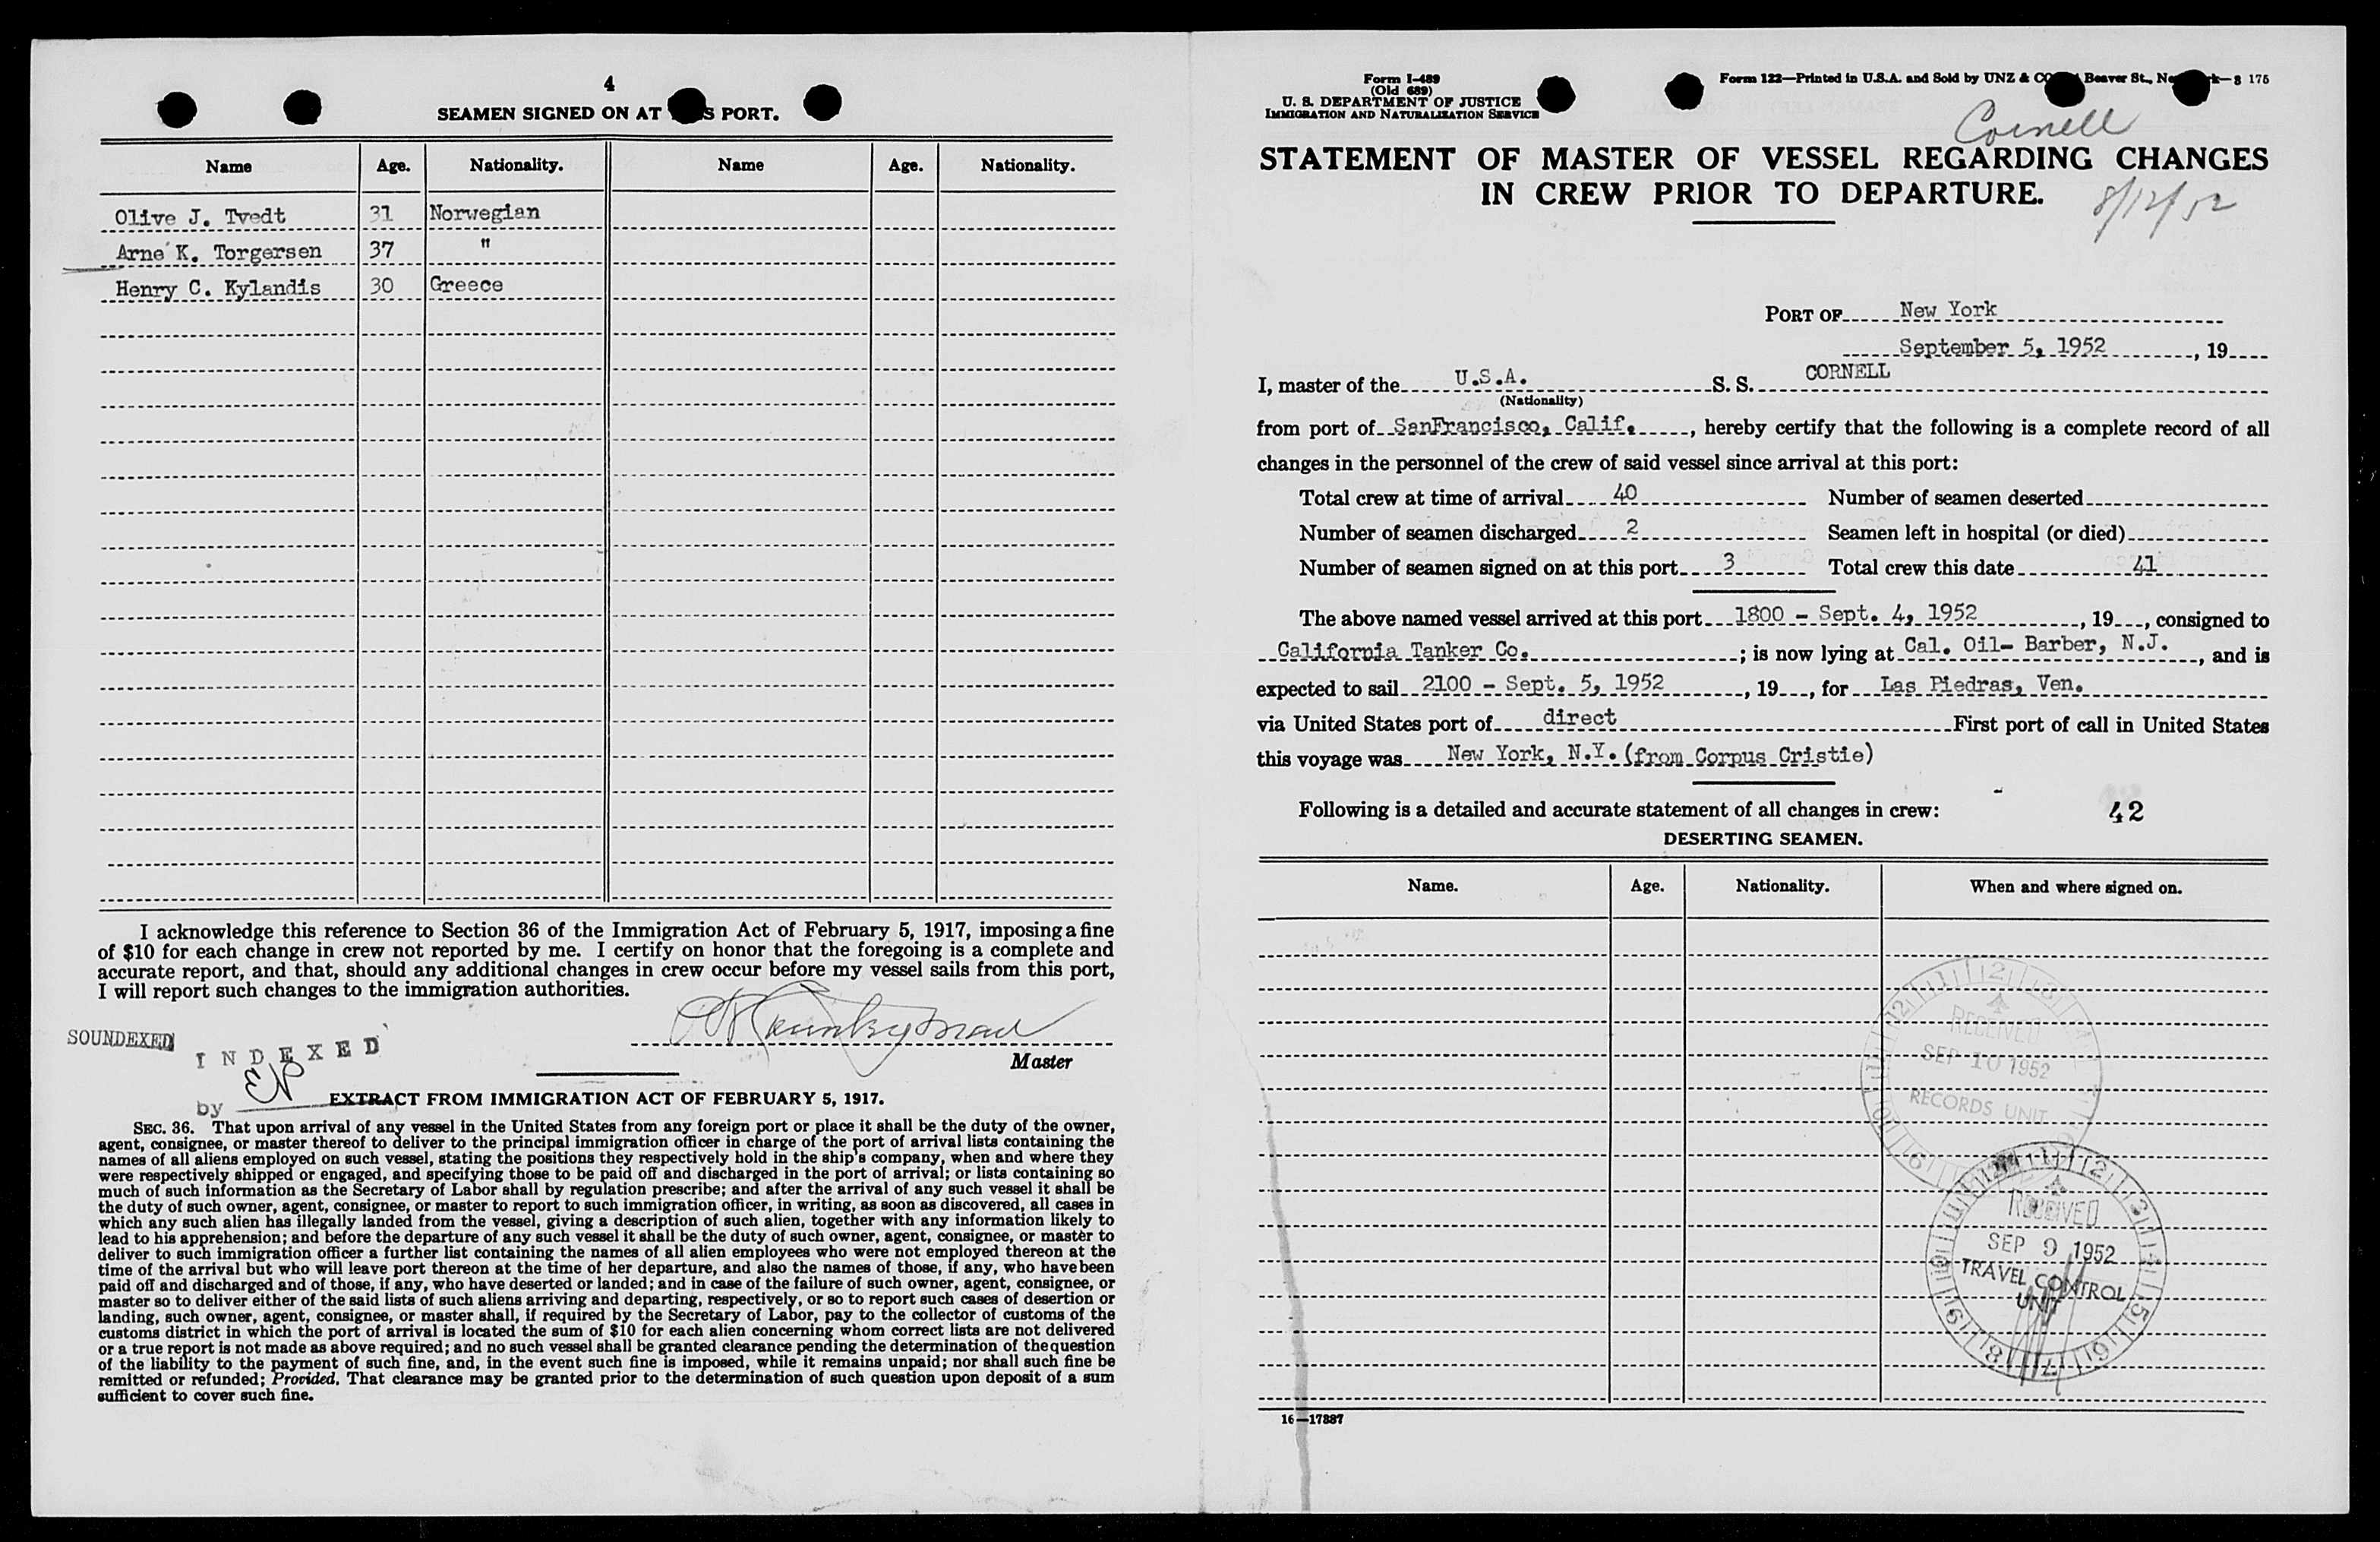 4
SEAMEN SIGNED ON AT S PORT.
Name Age. Nationality. Name Age. Nationality.
Olive J. Tvedt 31 Norwegian
Arne K. Torgersen 37 "
Henry C. Kylandis 30 Greece
I acknowledge this reference to Section 36 of the Immigration Act of February 5, 1917, imposing a fine
of $10 for each change in crew not reported by me. I certify on honor that the foregoing is a complete and
accurate report, and that, should any additional changes in crew occur before my vessel sails from this port,
I will report such changes to the immigration authorities.
SOUNDEXED
INDEXED
Master
by
EXTRACT FROM IMMIGRATION ACT OF FEBRUARY 5, 1917.
SEC. 36. That upon arrival of any vessel in the United States from any foreign port or place it shall be the duty of the owner,
agent, consignee, or master thereof to deliver to the principal immigration officer in charge of the port of arrival lists containing the
names of all aliens employed on such vessel, stating the positions they respectively hold in the ship's company, when and where they
were respectively shipped or engaged, and specifying those to be paid off and discharged in the port of arrival; or lists containing so
much of such information as the Secretary of Labor shall by regulation prescribe; and after the arrival of any such vessel it shall be
the duty of such owner, agent, consignee, or master to report to such immigration officer, in writing, as soon as discovered, all cases in
which any such alien has illegally landed from the vessel, giving a description of such alien, together with any information likely to
lead to his apprehension; and before the departure of any such vessel it shall be the duty of such owner, agent, consignee, or master to
deliver to such immigration officer a further list containing the names of all alien employees who were not employed thereon at the
time of the arrival but who will leave port thereon at the time of her departure, and also the names of those, if any, who have been
paid off and discharged and of those, if any, who have deserted or landed; and in case of the failure of such owner, agent, consignee, or
master so to deliver either of the said lists of such aliens arriving and departing, respectively, or so to report such cases of desertion or
landing, such owner, agent, consignee, or master shall, if required by the Secretary of Labor, pay to the collector of customs of the
customs district in which the port of arrival is located the sum of $10 for each alien concerning whom correct lists are not delivered
or a true report is not made as above required; and no such vessel shall be granted clearance pending the determination of the question
of the liability to the payment of such fine, and, in the event such fine is imposed, while it remains unpaid; nor shall such fine be
remitted or refunded; Provided, That clearance may be granted prior to the determination of such question upon deposit of a sum
sufficient to cover such fine.
Form I-489
(Old 689)
U. S. DEPARTMENT OF JUSTICE
IMMIGRATION AND NATURALIZATION SERVICE
Form 122—Printed in U.S.A. and Sold by UNZ & CO Beaver St., Ne k—8 175
Cornell
STATEMENT OF MASTER OF VESSEL REGARDING CHANGES
IN CREW PRIOR TO DEPARTURE.
8/12/52
PORT OF New York
September 5, 1952, 19
I, master of the U.S.A. S. S. CORNELL
(Nationality)
from port of SanFrancisco, Calif., hereby certify that the following is a complete record of all
changes in the personnel of the crew of said vessel since arrival at this port:
Total crew at time of arrival 40 Number of seamen deserted
Number of seamen discharged 2 Seamen left in hospital (or died)
Number of seamen signed on at this port 3 Total crew this date 41
The above named vessel arrived at this port 1800 - Sept. 4, 1952, 19, consigned to
California Tanker Co.; is now lying at Cal. Oil- Barber, N.J., and is
expected to sail 2100 - Sept. 5, 1952, 19, for Las Piedras, Ven.
via United States port of direct First port of call in United States
this voyage was New York, N.Y. (from Corpus Cristie)
Following is a detailed and accurate statement of all changes in crew: 42
DESERTING SEAMEN.
Name. Age. Nationality. When and where signed on.
RECEIVED
SEP 10 1952
RECORDS UNIT
RECEIVED
SEP 9 1952
TRAVEL CONTROL
UNIT
16—17887